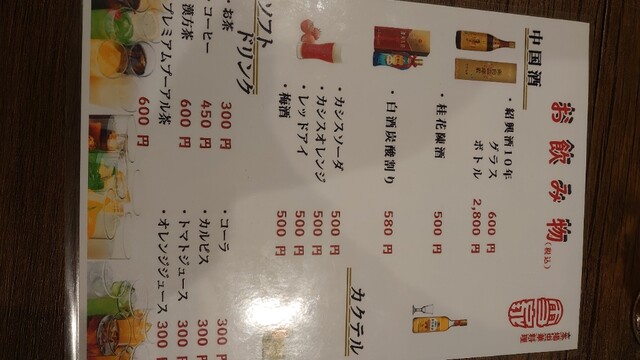 お飲み物(税込)
雪家邨
中国酒
・紹興酒10年
グラス 600円
ボトル 2,800円
・桂花陳酒 500円
・白酒炭酸割り 580円
カクテル
・カシスソーダ 500円
・カシスオレンジ 500円
・レッドアイ 500円
・梅酒 500円
ソフトドリンク
・お茶 300円
・コーヒー 450円
・漢方茶 600円
プレミアムプーアル茶 600円
・コーラ 300
・カルピス 300
・トマトジュース 300
・オレンジジュース 300